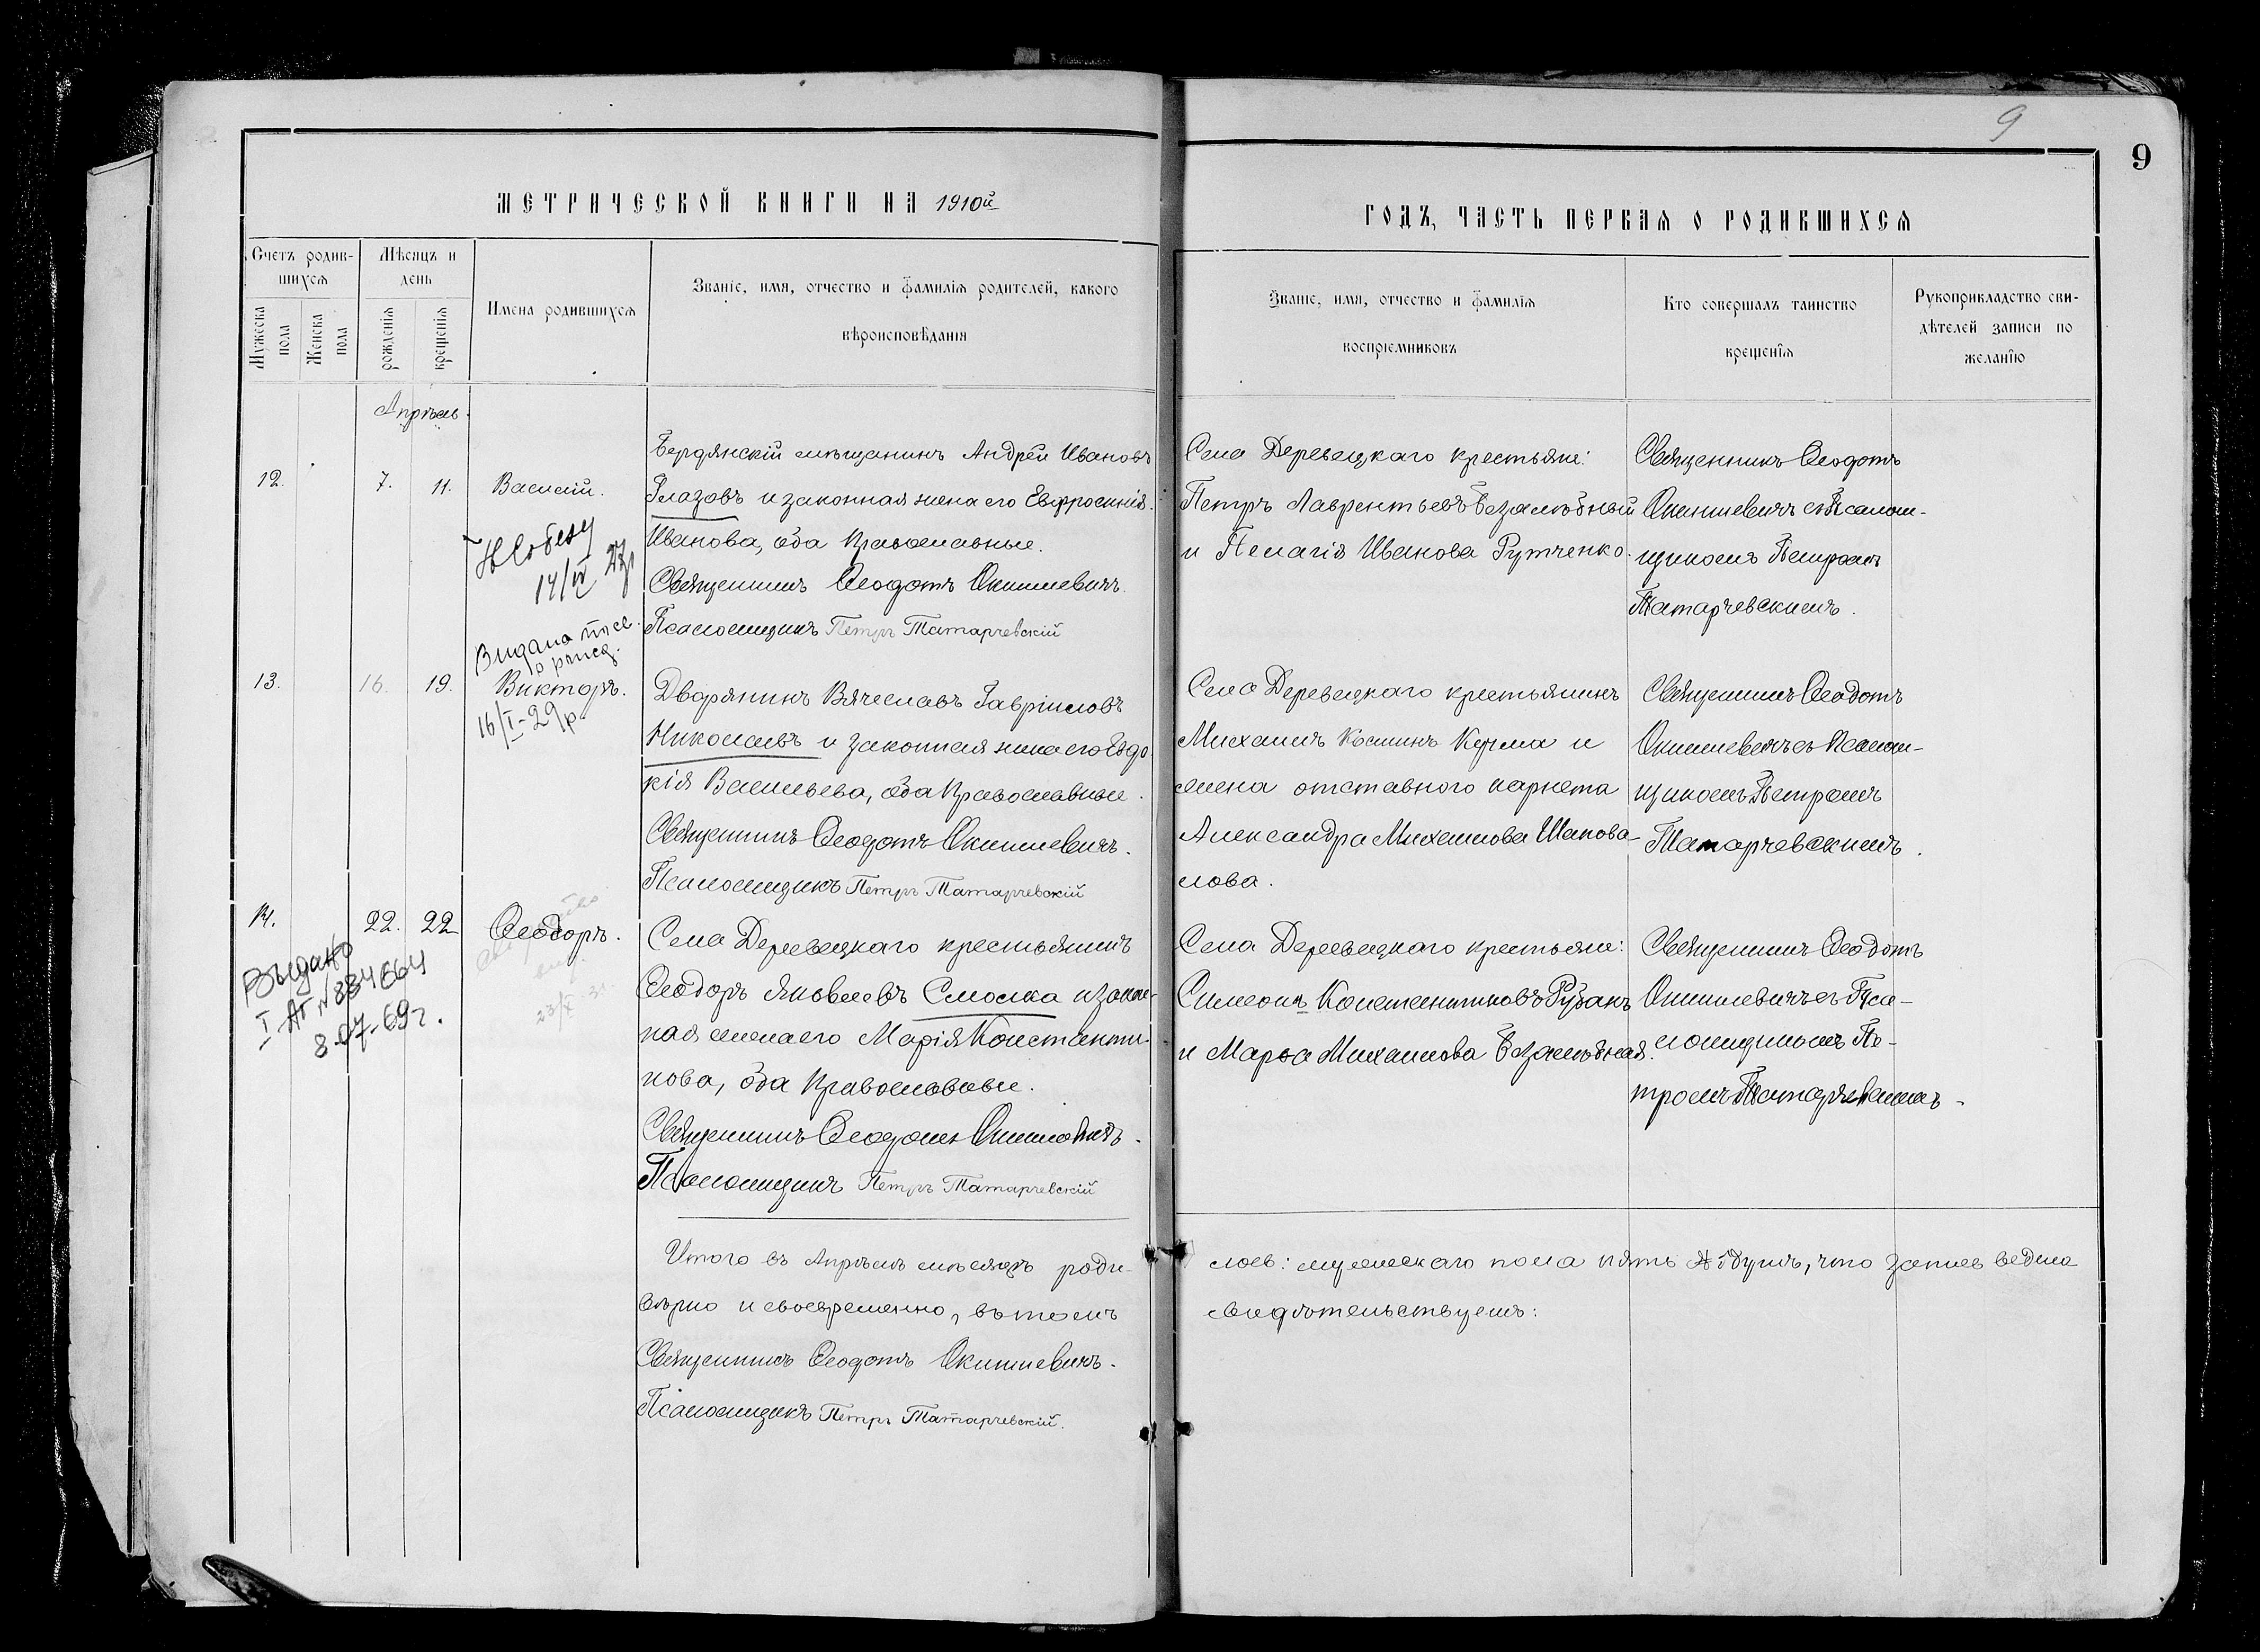 9
9
МЕТРИЧЕСКОЙ КНИГИ НА 1910й
ГОДЪ, ЧАСТЬ ПЕРВАЯ О РОДИВШИХСЯ
Счетъ родив-
шихся
Мужеска пола
Женска пола
Мѣсяцъ и
день
рожденія
крещенія
Имена родившихся
Званіе, имя, отчество и фамилія родителей, какого
вѣроисповѣданія
Званіе, имя, отчество и фамилія
воспріемниковъ
Кто совершалъ таинство
крещенія
Рукоприкладство сви-
дѣтелей записи по
желанію
Апрѣль.
12.
7.
11.
Василій.
14/IV 27р
Бердянскій мѣщанинъ Андрей Ивановъ
Глазовъ и законная жена его Евфросинія
Иванова, оба православные.
Священникъ Ѳеодотъ Окишевичъ.
Псаломщикъ Петръ Татарчевскій
Села Деревецкаго крестьяне:
Петръ Лаврентьевъ Беззамѣтный
и Пелагія Иванова Рутченко.
Священникъ Ѳеодотъ
Окишевичъ съ Псалом-
щикомъ Петромъ
Татарчевскимъ.
13.
16.
19.
Видана
Викторъ.
16/I-29р.
Дворянинъ Вячеславъ Гавріиловъ
Николаевъ и законная жена его Евдо-
кія Васильева, оба православные.
Священникъ Ѳеодотъ Окишевичъ.
Псаломщикъ Петръ Татарчевскій
Села Деревецкаго крестьянинъ
Михаилъ Косминъ Курма и
жена отставного корнета
Александра Михаилова Шапова-
лова.
Священникъ Ѳеодотъ
Окишевичъ съ Псалом-
щикомъ Петромъ
Татарчевскимъ.
14.
22.
22
Ѳеодоръ.
Выдано
I-АГ № 884664
8-07-69г.
Села Деревецкаго крестьянинъ
Ѳеодоръ Яковлевъ Смолка и закон-
ная жена его Марія Константи-
нова, оба православные.
Священникъ Ѳеодотъ Окишевичъ.
Псаломщикъ Петръ Татарчевскій
Села Деревецкаго крестьяне:
Симеонъ Константиновъ Рубанъ
и Марѳа Михаилова Беззамѣтная.
Священникъ Ѳеодотъ
Окишевичъ съ Пса-
ломщикомъ Пе-
тромъ Татарчевскимъ-
Итого въ Апрѣлѣ мѣсяцѣ роди-
лось: мужескаго пола пять душъ, что запись ведена
вѣрно и своевременно, въ томъ
свидѣтельствуемъ:
Священникъ Ѳеодотъ Окишевичъ.
Псаломщикъ Петръ Татарчевскій.